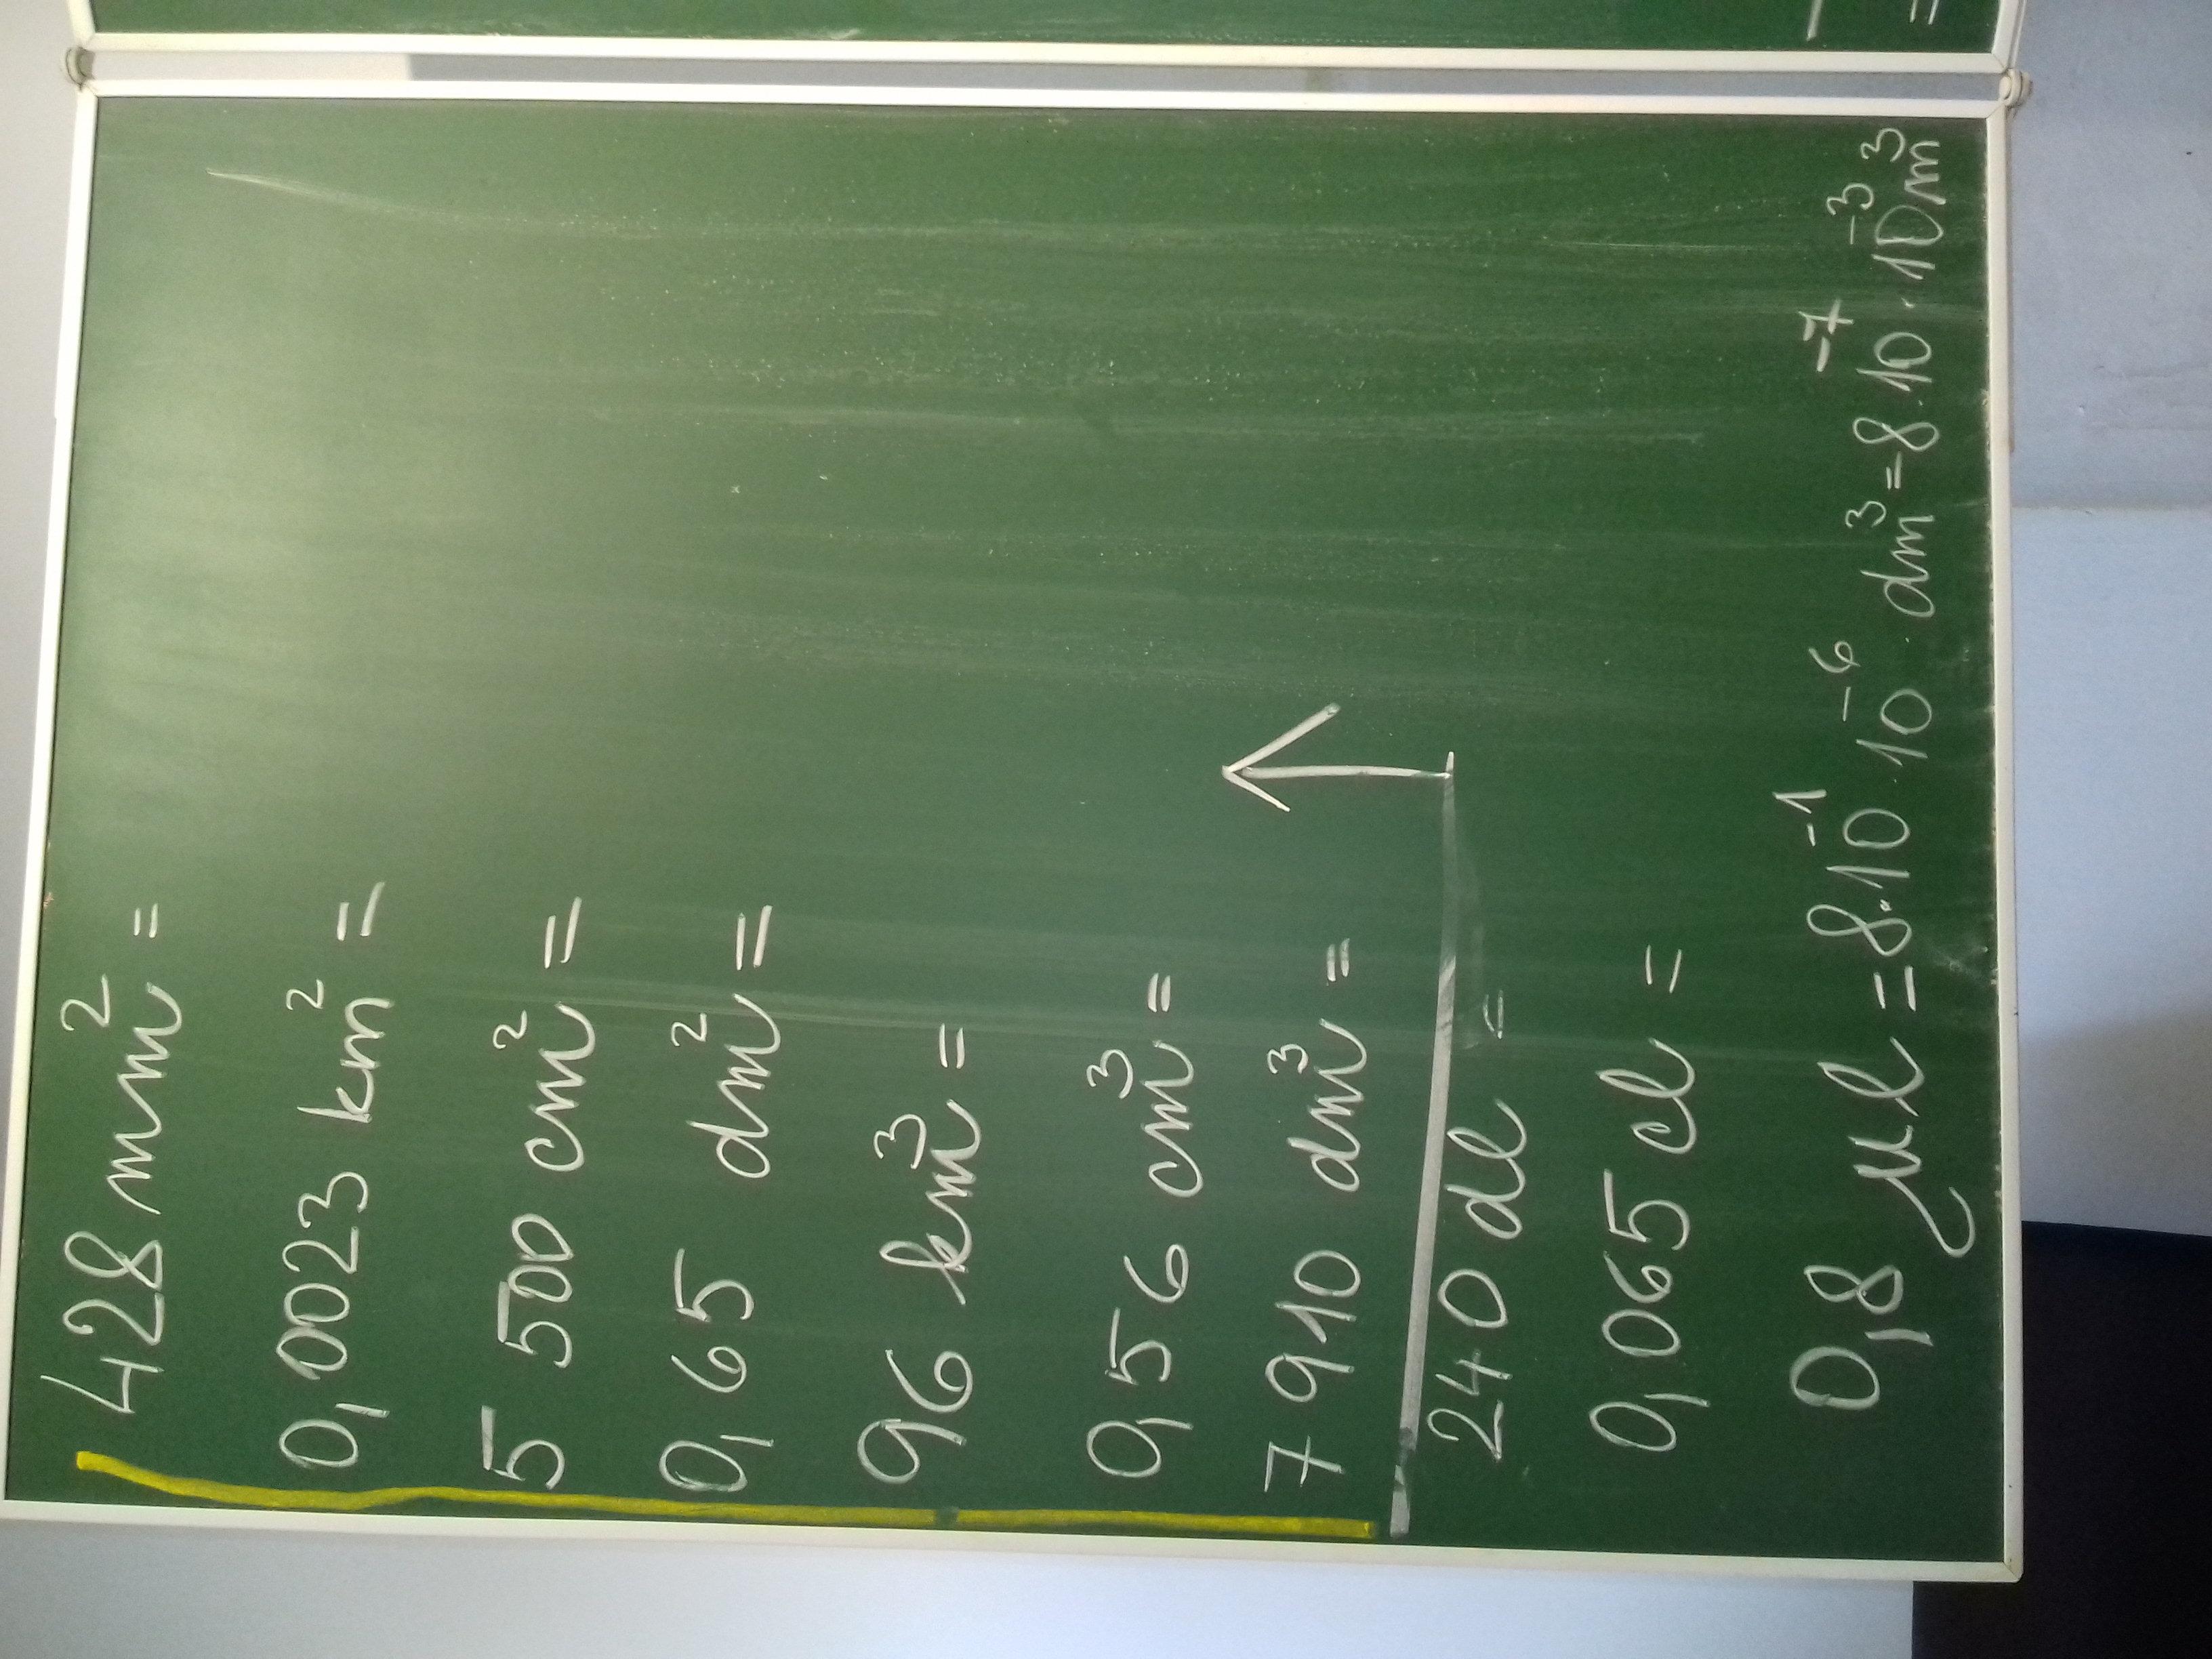 428 mm² =
0,0023 km² =
5 500 cm² =
0,65 dm² =
96 km³ =
0,56 cm³ =
7 910 dm³ =
240 dl =
0,065 cl =
0,8 µl = 8·10⁻¹·10⁻⁶·dm³ = 8·10⁻⁷·10⁻³m³